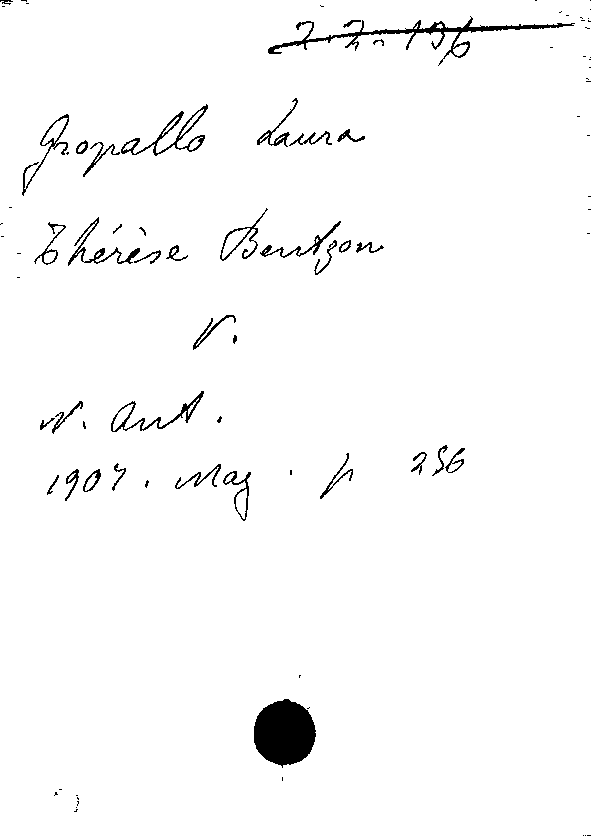 2.2.196
Gropallo Laura
Thérèse Bentzon
V.
N. Ant.
1907. Mag. p 256